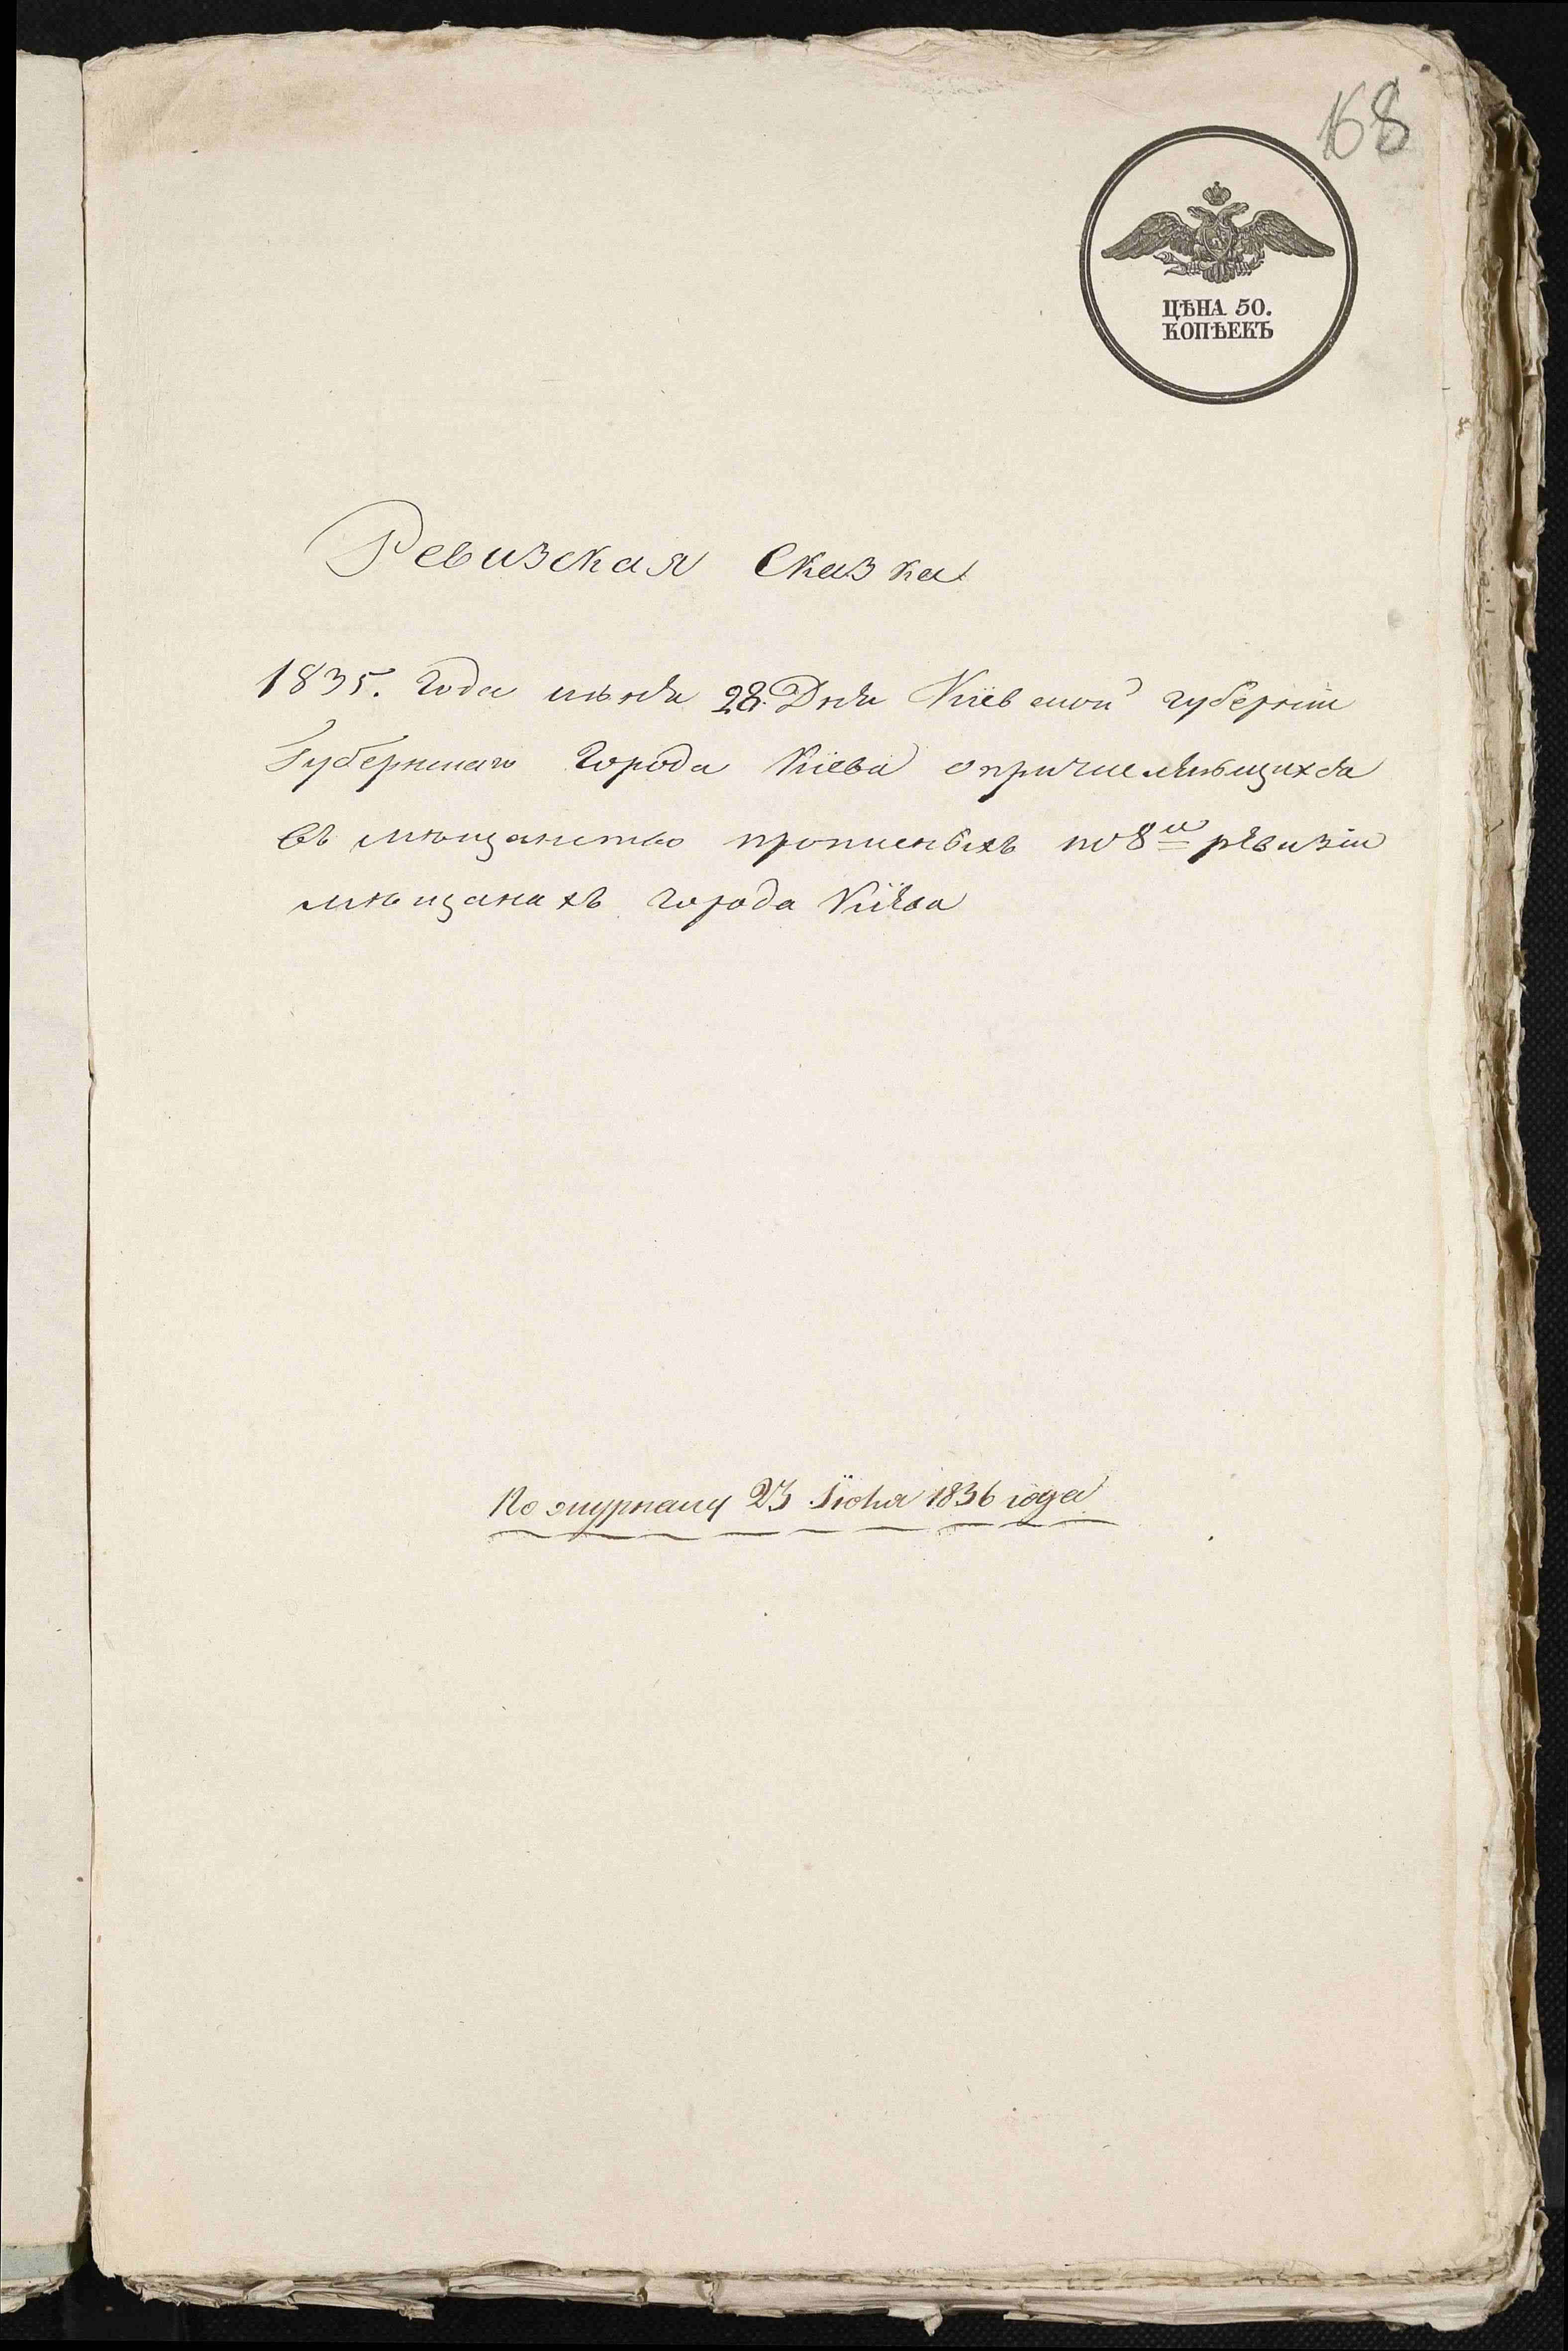 168
ЦѢНА 50.
КОПѢЕКЪ
Ревизская Сказка
1835. Года 28. Дня Кіевской губерніи
Губернскаго Города Кіева о причислившихся
въ мѣщанство прописныхъ по 8й ревизіи
мѣщанахъ города Кіева
По журналу 23 Іюня 1836 года